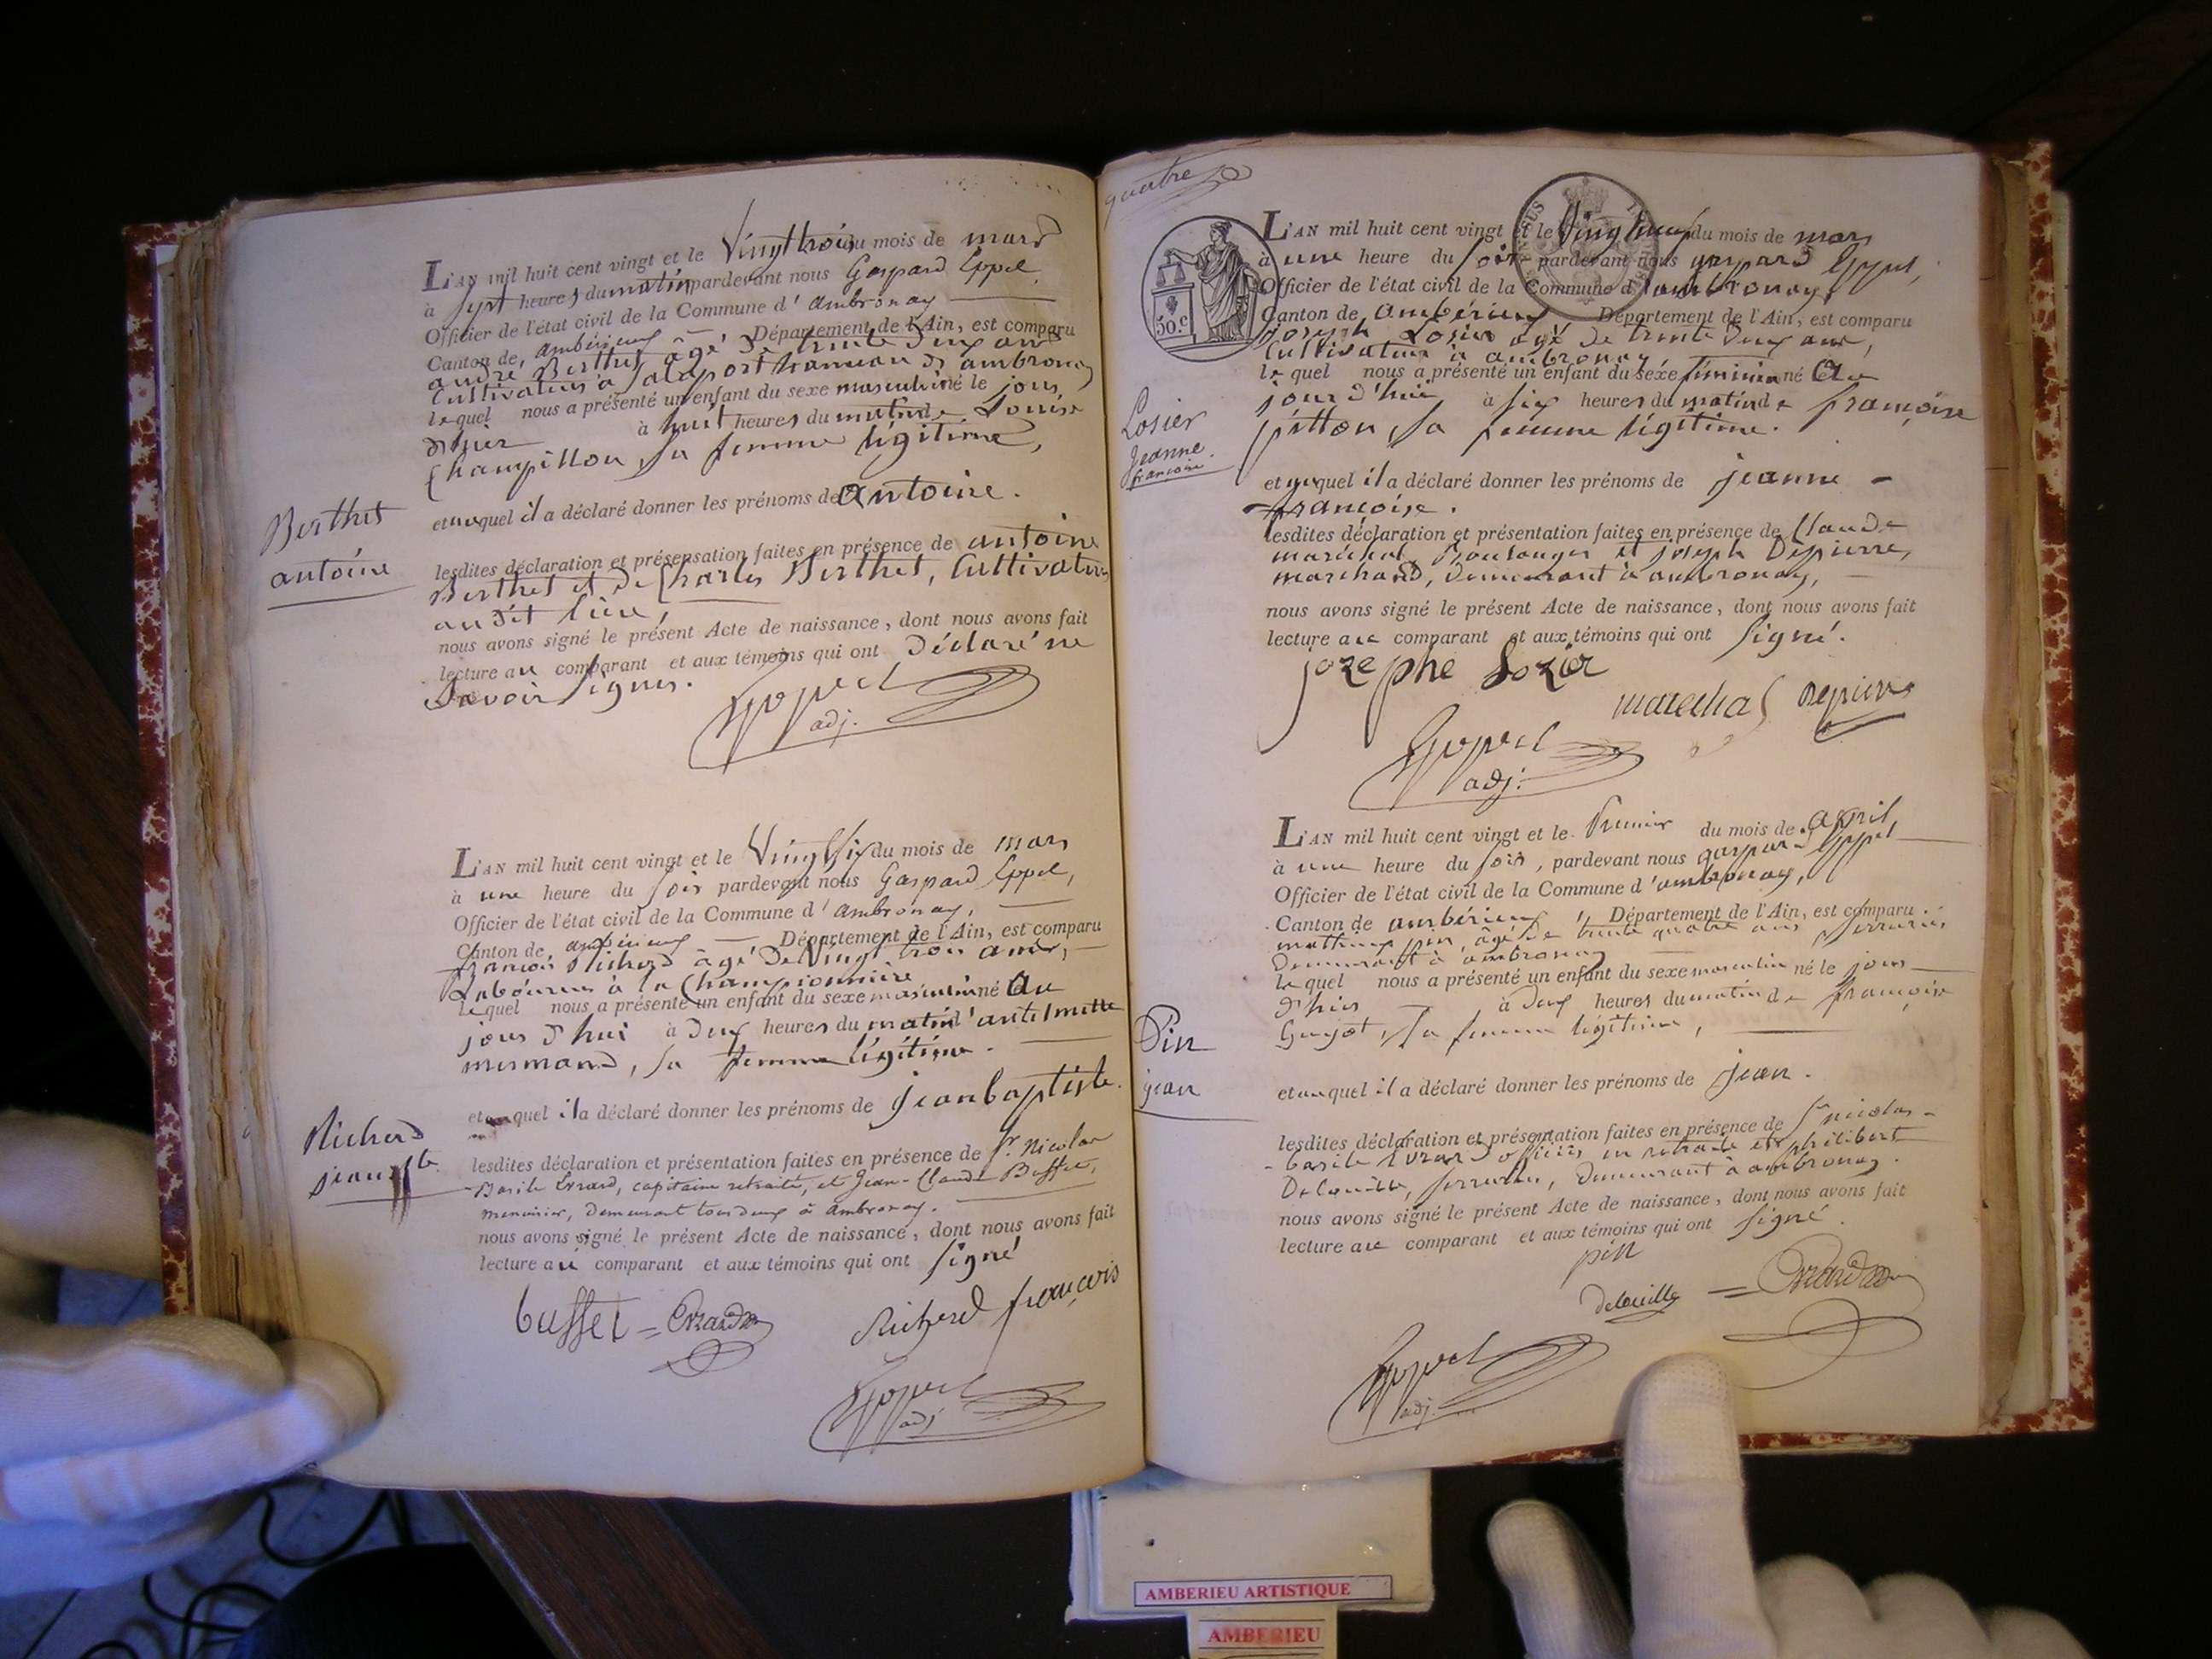 L'AN mil huit cent vingt et le Vingt trois du mois de mars
à sept heures du matin pardevant nous Gaspard Eppel
Officier de l'état civil de la Commune d'ambronay
Canton de ambérieux Département de l'Ain, est comparu
andré Berthet âgé de trente deux ans
Cultivateur à hameau d'ambronay
lequel nous a présenté un enfant du sexe masculin né le jour
d'hier à huit heures du matin de Louise
Champillon, sa femme légitime,
Berthet
antoine
et auquel il a déclaré donner les prénoms de antoine.
lesdites déclaration et présensation faites en présence de antoine
Berthet et de Charles Berthet, Cultivateurs
au dit lieu,
nous avons signé le présent Acte de naissance, dont nous avons fait
lecture au comparant et aux témoins qui ont Déclaré ne
Savoir signer.
Eppel
adj.
L'AN mil huit cent vingt et le Vingt six du mois de mars
à une heure du soir pardevant nous Gaspard Eppel,
Officier de l'état civil de la Commune d'ambronay,
Canton de ambérieux Département de l'Ain, est comparu
françois Richerd âgé de Vingt trois ans,
Laboureur à la Championnière
lequel nous a présenté un enfant du sexe masculin né au
jour d'hui à deux heures du matin d'antelmette
mermand, sa femme légitime.
Richerd
jean bte
et auquel il a déclaré donner les prénoms de jean baptiste.
lesdites déclaration et présentation faites en présence de Sr. Nicolas
Basile Evrard, capitaine retraité, et Jean-Claude Buffet,
menuisier, demeurant tous deux à Ambronay.
nous avons signé le présent Acte de naissance, dont nous avons fait
lecture au comparant et aux témoins qui ont signé
buffet = Evrard
Richerd françois
Eppel
adj
quatre
50.c
L'AN mil huit cent vingt et le Vingt neuf du mois de mars
à une heure du soir pardevant nous gaspard Eppel,
Officier de l'état civil de la Commune d'ambronay,
Canton de ambérieux Département de l'Ain, est comparu
joseph Losier âgé de trente deux ans,
Cultivateur à ambronay
lequel nous a présenté un enfant du sexe féminin né au
jour d'hui à six heures du matin de françoise
pitton, sa femme légitime.
Losier
Jeanne.
françoise
et auquel il a déclaré donner les prénoms de jeanne -
françoise.
lesdites déclaration et présentation faites en présence de Claude
maréchal, Boulanger et joseph Depierre,
marchand, demeurant à ambronay,
nous avons signé le présent Acte de naissance, dont nous avons fait
lecture au comparant et aux témoins qui ont signé.
jozephe Lozier
marechal Depierre
Eppel
adj.
L'AN mil huit cent vingt et le Premier du mois de avril,
à une heure du soir, pardevant nous gaspard Eppel
Officier de l'état civil de la Commune d'ambronay,
Canton de ambérieux, Département de l'Ain, est comparu
mathieu pin, âgé de trente quatre ans serrurier
Demeurant à ambronay
lequel nous a présenté un enfant du sexe masculin né le jour
d'hier à deux heures du matin de françoise
Guyot, sa femme légitime,
Pin
jean
et auquel il a déclaré donner les prénoms de jean.
lesdites déclaration et présentation faites en présence de Sr nicolas -
basile Evrard officier en retraite et philibert
Delouille, serrurier, demeurant à ambronay.
nous avons signé le présent Acte de naissance, dont nous avons fait
lecture au comparant et aux témoins qui ont signé.
pin
delouille = Evrard
Eppel
adj.
AMBERIEU ARTISTIQUE
AMBERIEU